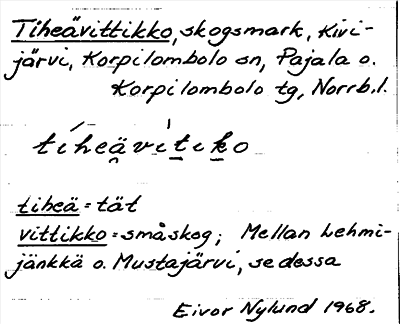 Tiheävittikko, skogsmark, Kivi-
järvi, Korpilombolo sn, Pajala o.
Korpilombolo tg, Norrb.l.
tiheävitiko
tiheä = tät
vittikko = småskog; Mellan Lehmi-
jänkkä o. Mustajärvi, se dessa
Eivor Nylund 1968.